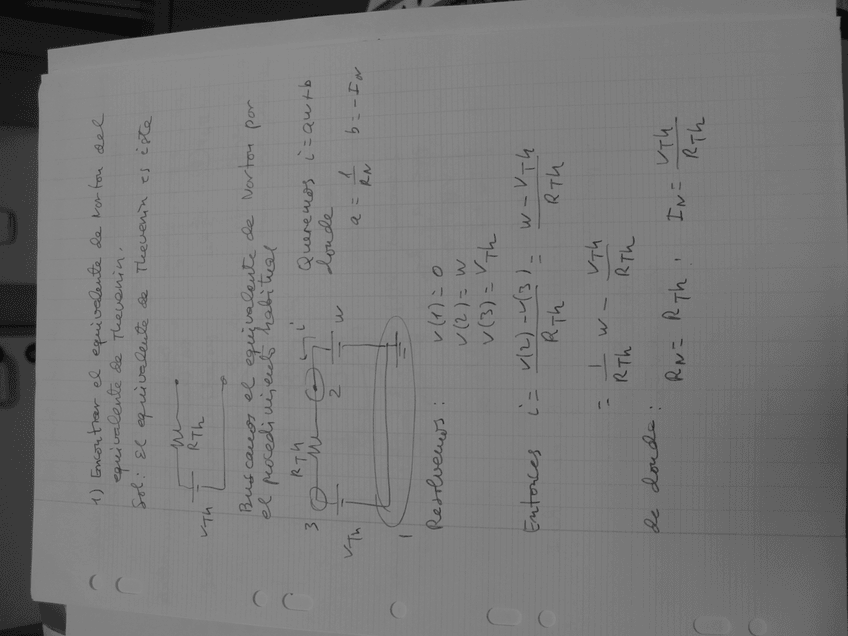 1) Encontrar el equivalente de Norton del
equivalente de Thevenin.
Sol: El equivalente de Thevenin es este
VTh
RTh
Buscamos el equivalente de Norton por
el procedimiento habitual
3
RTh
i
VTh
2
w
1
Queremos i=aw+b
donde
a = 1/RN b = -IN
Resolvemos: v(1)=0
v(2)=w
v(3)=VTh
Entonces i = v(2)-v(3)/RTh = w-VTh/RTh
= 1/RTh w - VTh/RTh
de donde: RN = RTh, IN = VTh/RTh